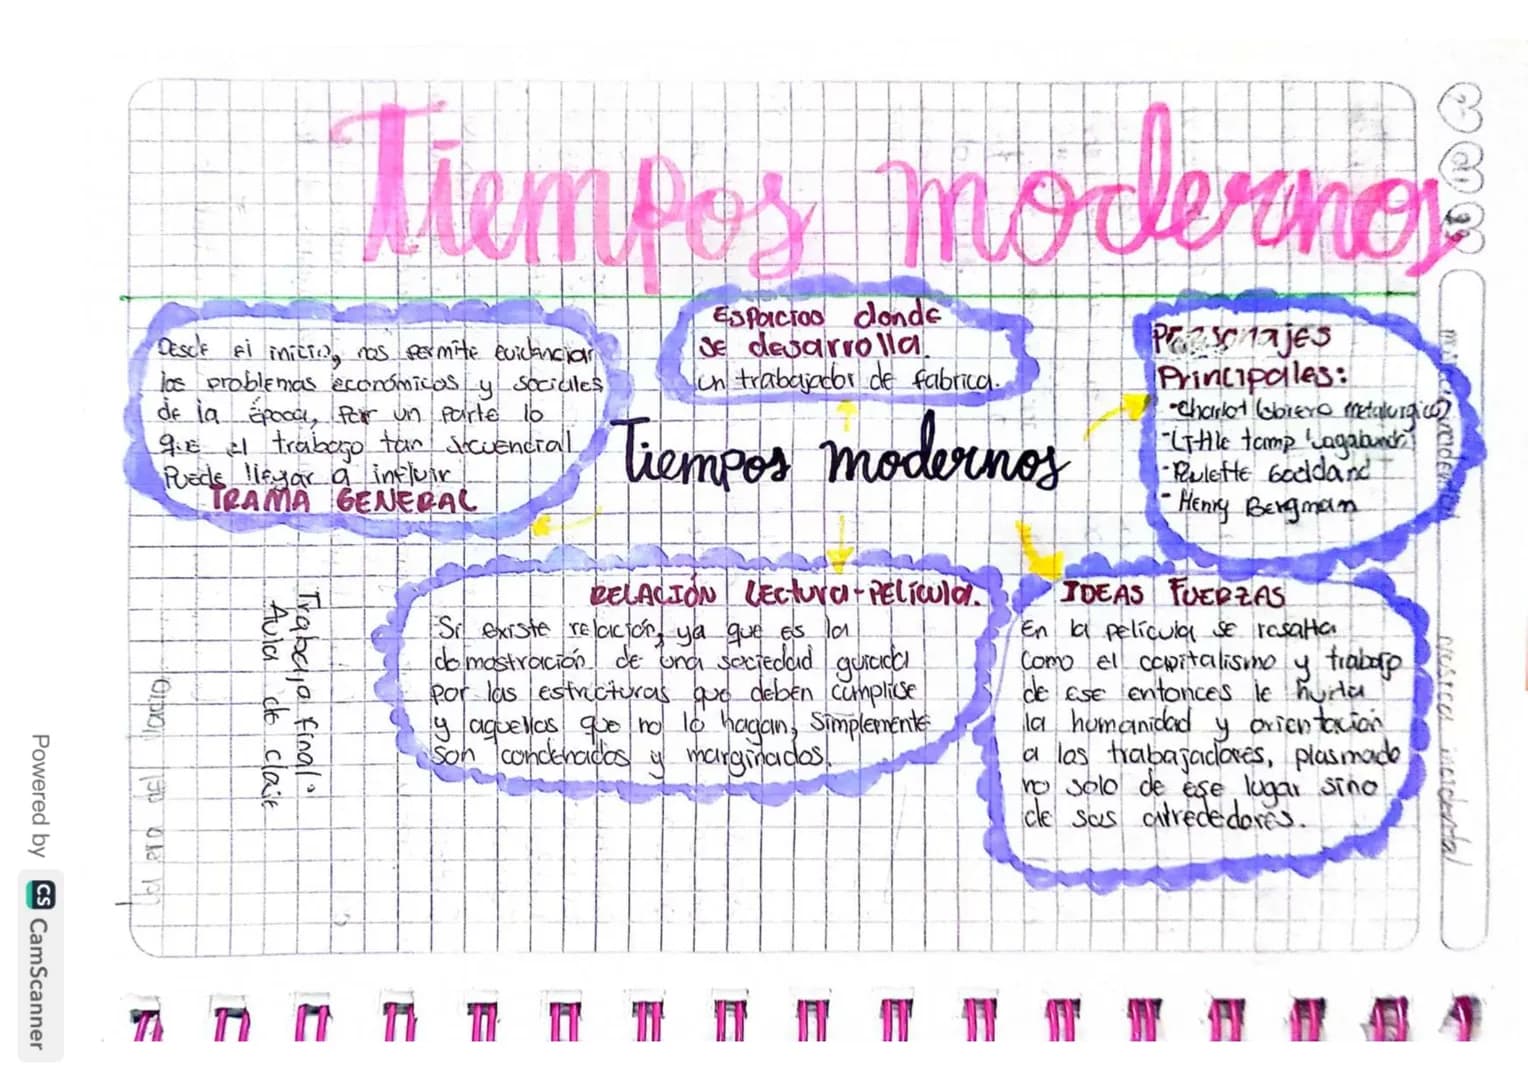 Tiempos modernos
Desde el inicio, nos permite evidenciar
los problemas económicos y sociales
de la época, por un parte lo
que el trabajo tan secuencial
Puede llegar a influir
TRAMA GENERAL
Espacios donde
se desarrolla.
un trabajador de fabrica.
Personajes
Principales:
-Charlot (obrero metalurgico)
-Little tamp vagabundo
-Paulette Goddand
-Henry Bergman
Tiempos modernos
RELACIÓN Lectura-Película.
Si existe relación, ya que es la
domostración de una sociedad guiada
por las estructuras que deben cumplise
y aquellos que no lo hagan, Simplemente
son condenados y marginados.
IDEAS FUERZAS
En la película se resalta
como el capitalismo y trabajo
de ese entonces le hurta
la humanidad y orientación
a los trabajadores, plasmado
no solo de ese lugar sino
de sus alrededores.
Trabajo final:
Aula de clase
Powered by CS CamScanner